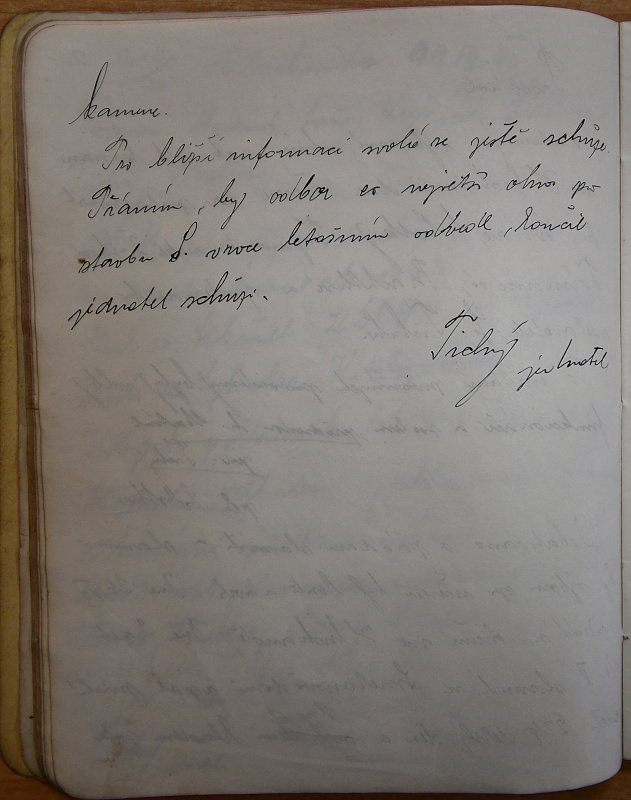 kamene.
Pro bližší informaci svolá se ještě schůze.
Přáním, by odbor co největší obnos po
stavbu S. v roce letošním odvedl, končil
jednatel schůzi.
Tichý
jednatel